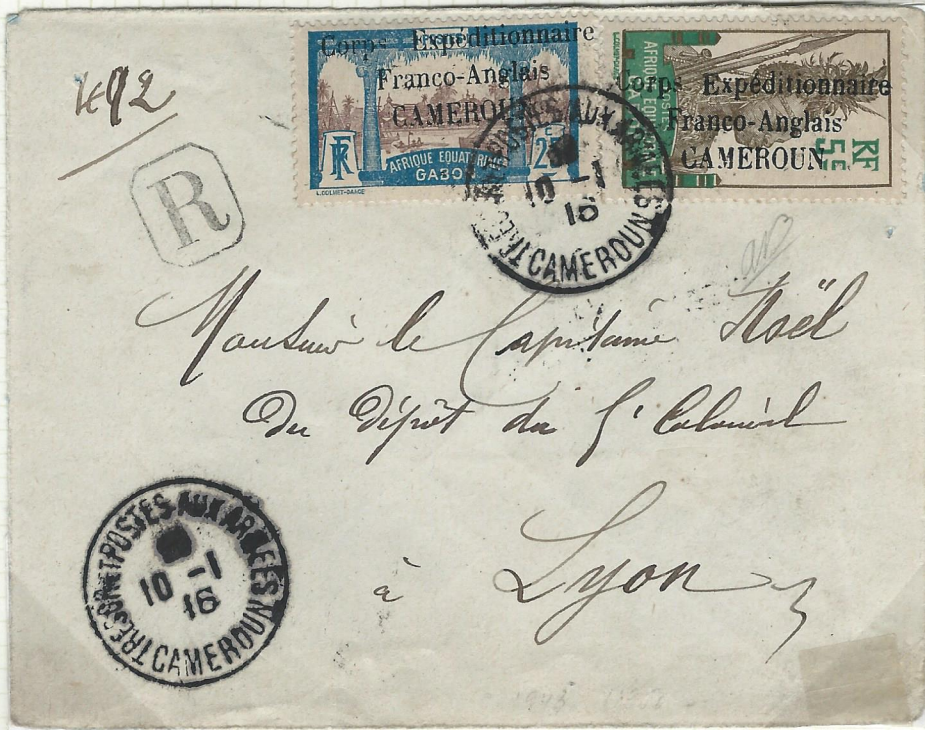 492
R
Corps Expéditionnaire
Franco-Anglais
CAMEROUN
RF
25 c
AFRIQUE EQUATORIALE
GABON
L. COLMET-DAAGE
Corps Expéditionnaire
Franco-Anglais
CAMEROUN
AFRIQUE EQUATORIALE
POSTES
RF
5c
TRESOR ET POSTES AUX ARMEES
10 -1
16
CAMEROUN
Monsieur le Capitaine Noël
du dépôt du 5e Colonial
à Lyon
TRESOR ET POSTES AUX ARMEES
10 -1
16
CAMEROUN